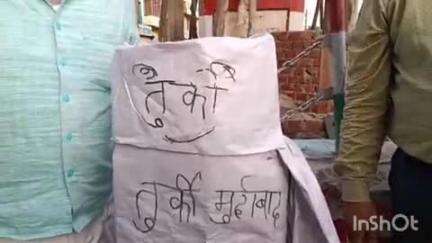 तुर्की
तुर्की मुर्दाबाद
InShOt